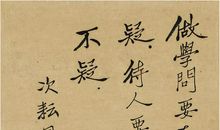 做學問要
疑.待人要
不疑.
次耘